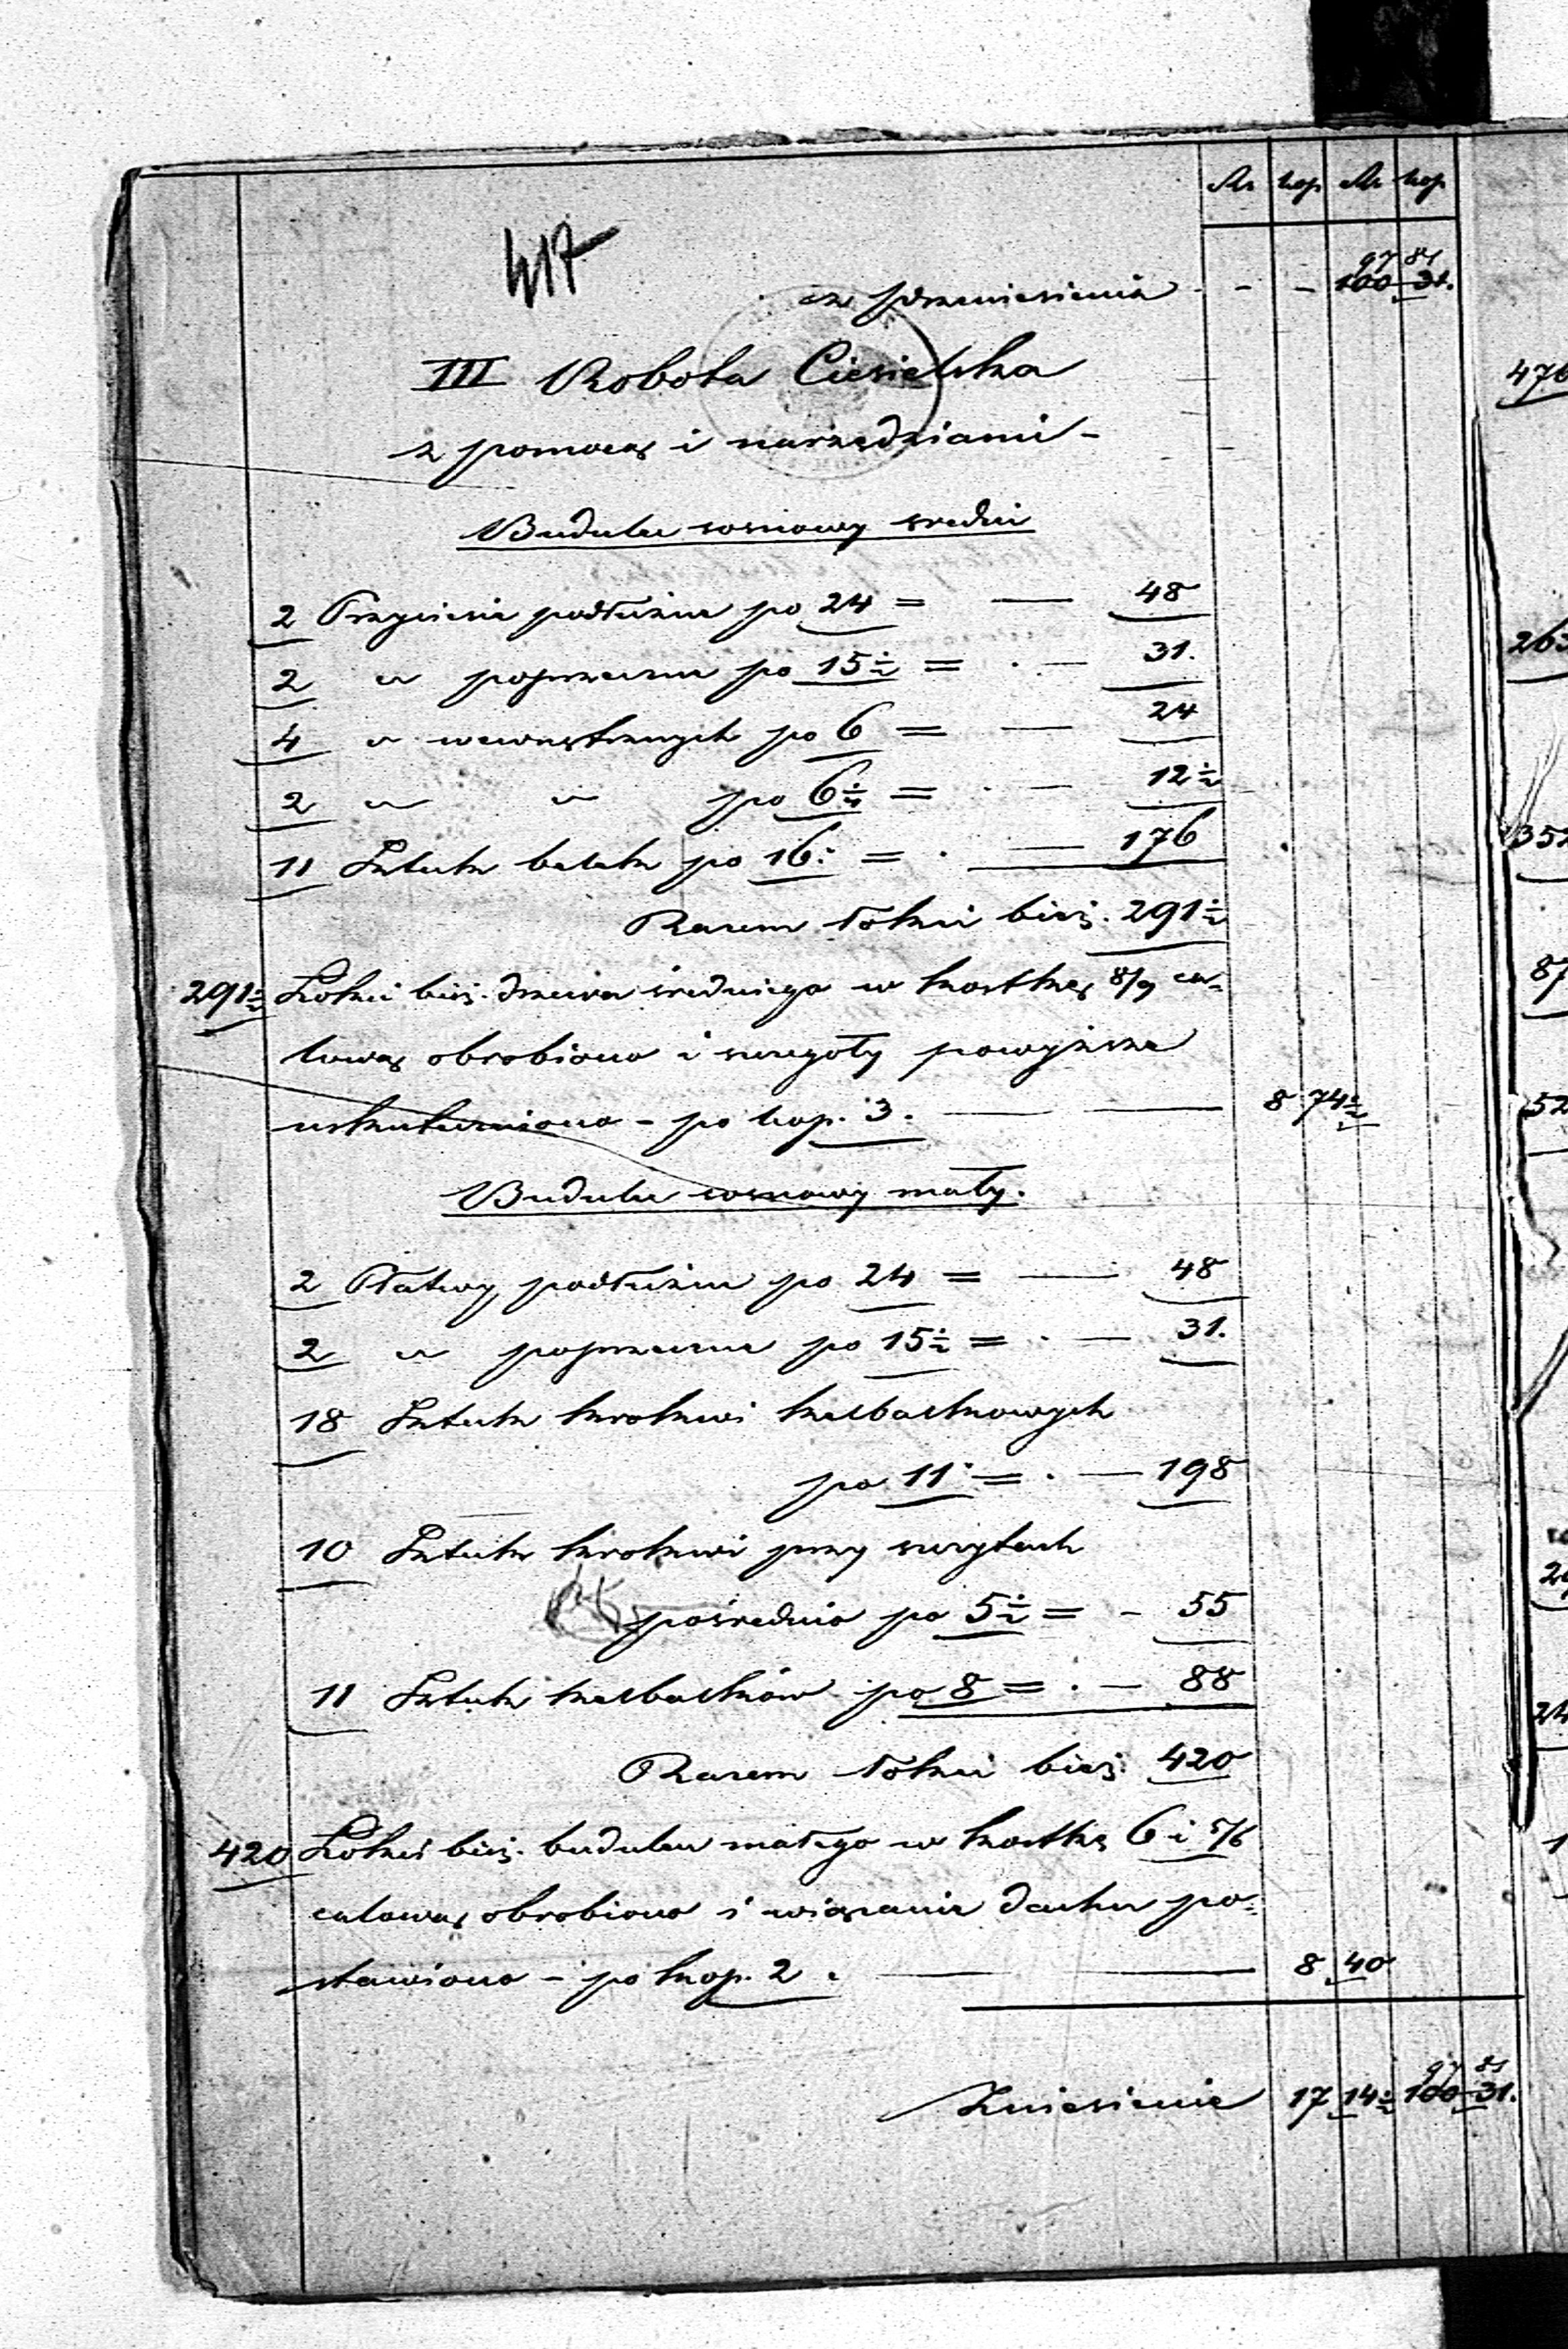 Rs kop Rs kop
417
97 81
z przeniesienia - - 100 31.
III Robota Ciesielska
z pomocą i narzędziami -
Budulec sosnowy średni
2 Przyciesie podłużne po 24 = — 48
2 " poprzeczne po 15½ = . — 31.
4 " wewnętrznych po 6 = — 24
2 " " po 6¼ = . — 12½
11 Sztuk belek po 16. = . — 176
Razem łokci bież. 291½
291½ Łokci bież. drzewa średniego w kostkę 8/9 ca-
lową obrobiono i szczegóły powyższe
uskuteczniono - po kop. 3. — — 8 74½
Budulec sosnowy mały.
2 Płatwy podłużne po 24 = — 48
2 " poprzeczne po 15½ = . — 31.
18 Sztuk krokwi
po 11 = . — 198
10 Sztuk krokwi przy szczytach
pośrednio po 5½ = - 55
11 Sztuk po 8 = . — 88
Razem łokci bież. 420
420 Łokci bież. budulcu małego w kostkę 6 i 5/6
calową obrobiono i wiązanie dachu po-
stawiono - po kop. 2. — — 8 40
97 81
Zniesienie 17 14½ 100 31.
476
352
87
52
24